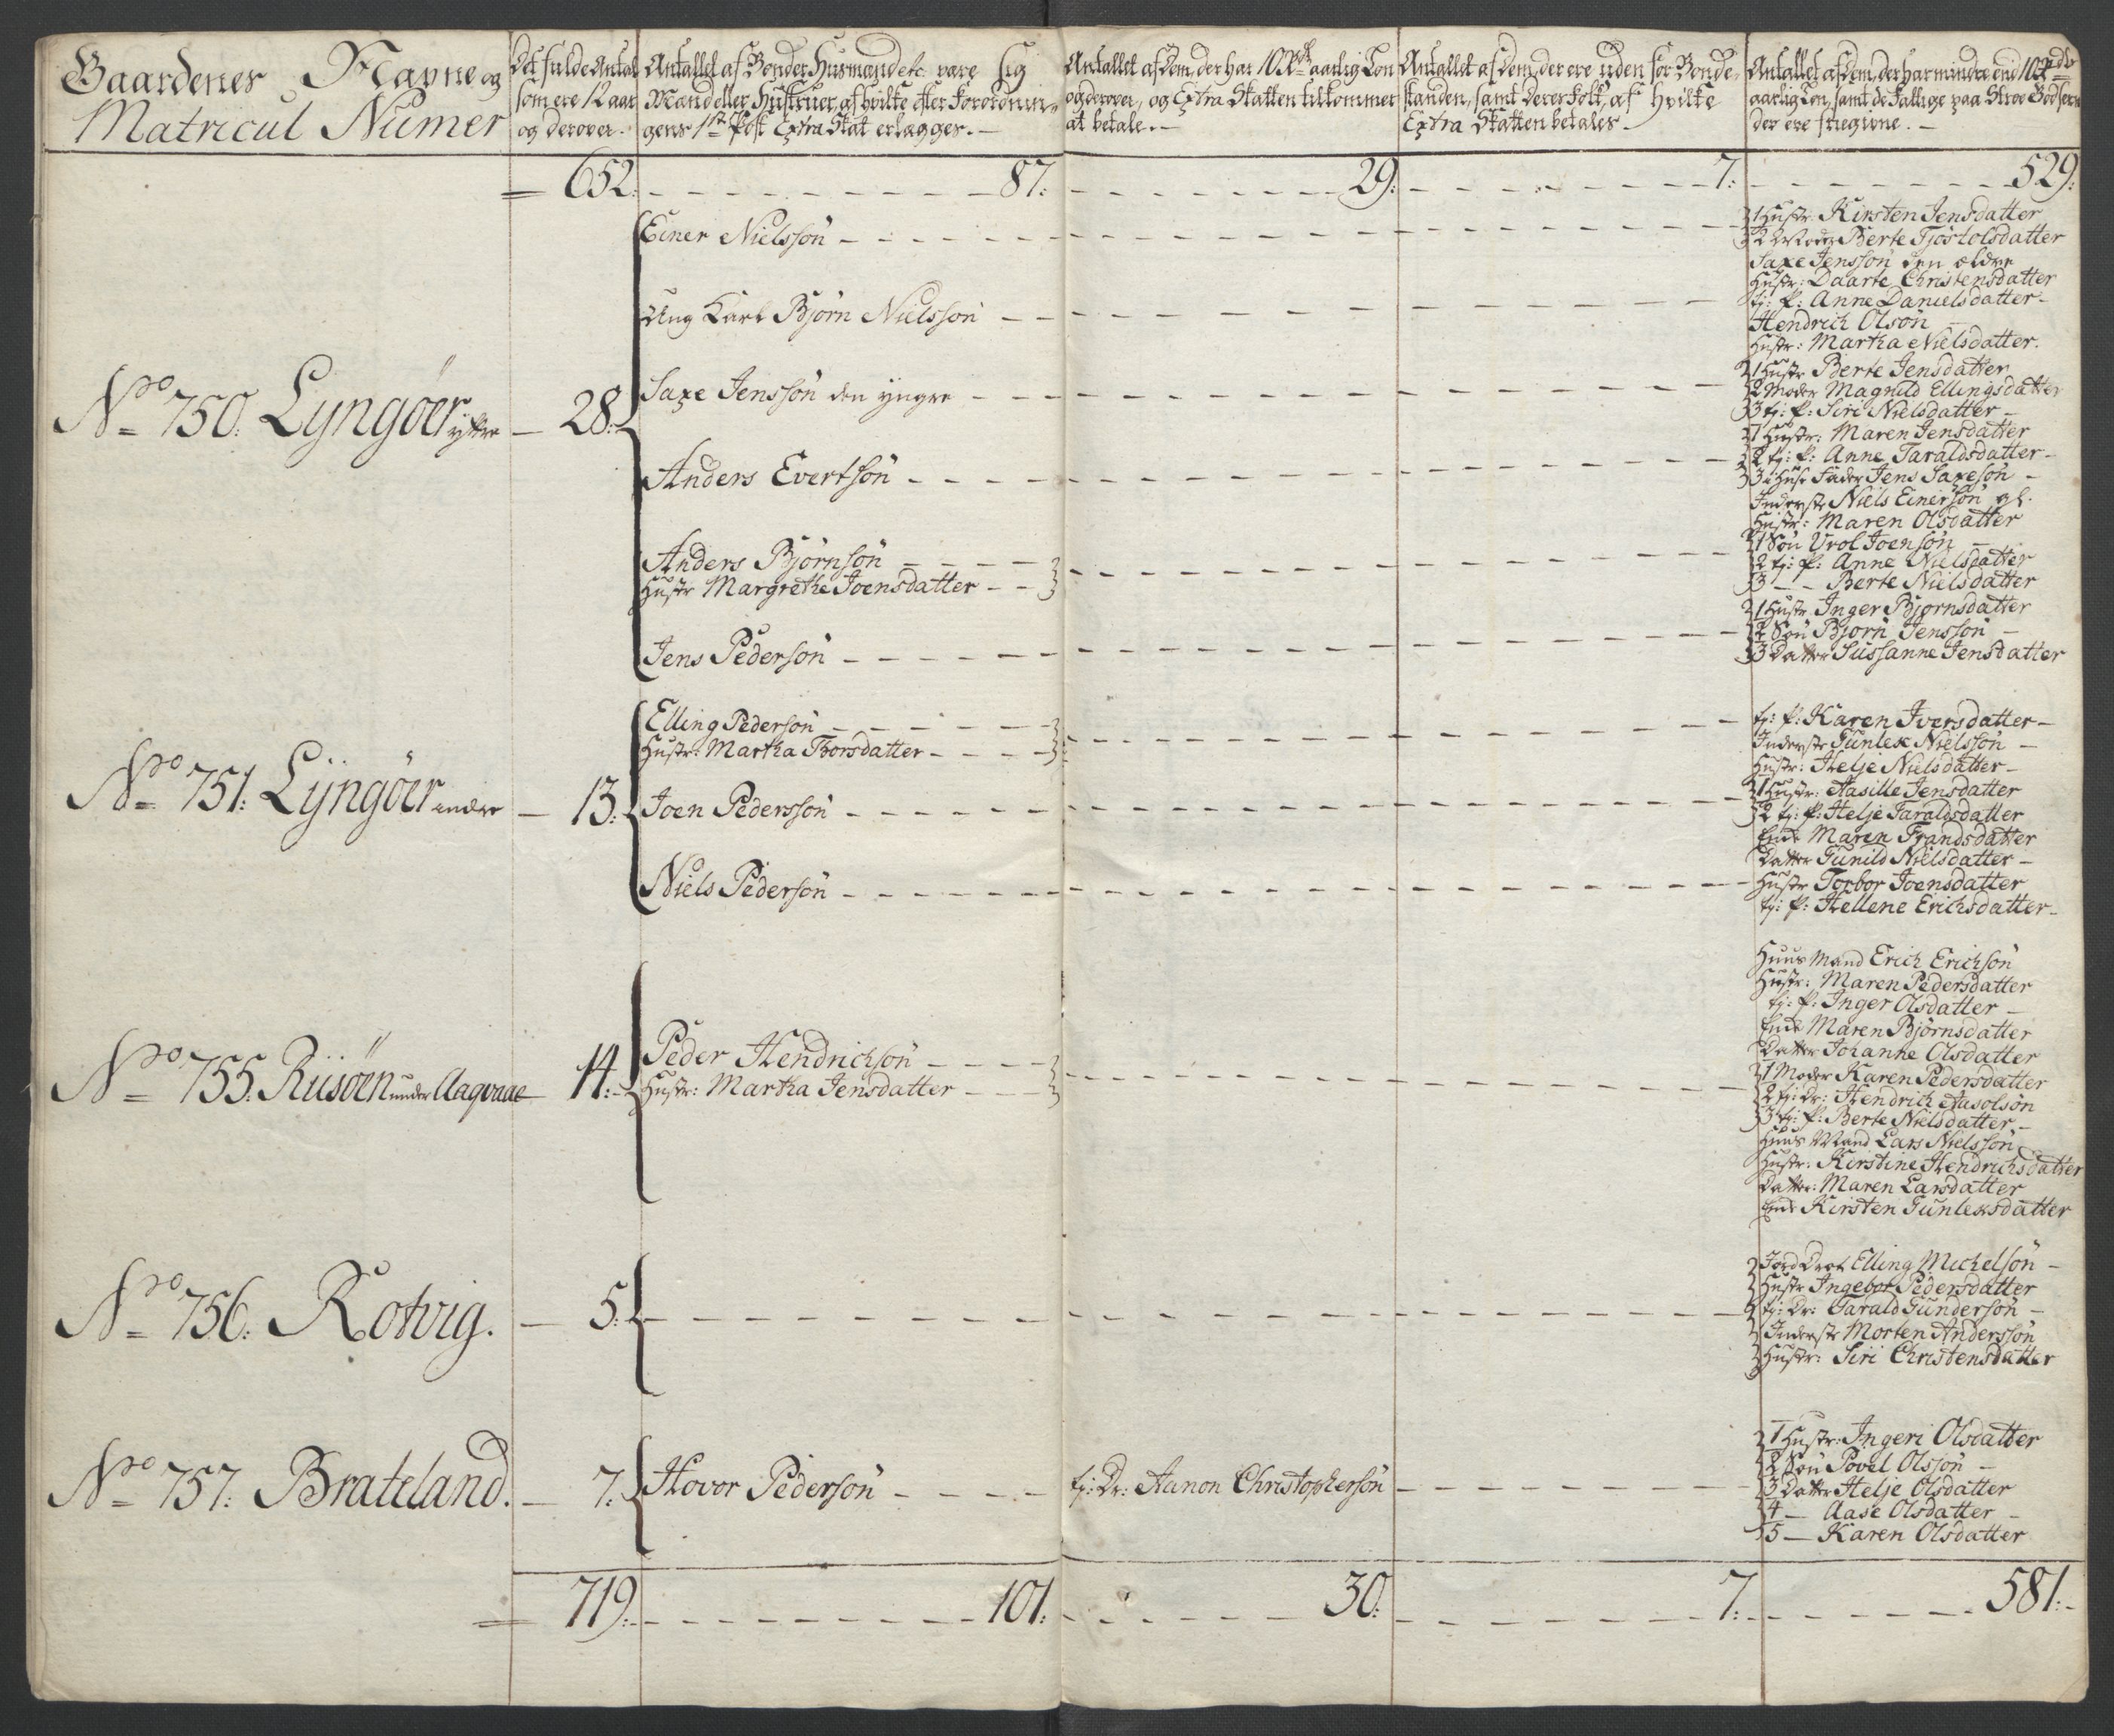 Gaardenes Navne og
Matricul Numer
Det fulde Antal
som ere 12 aar
og derover.
Antallet af Bonder Husmænd etc være sig
Mænd eller Hustruer, af hvilke efter Forordnin-
gens 1ste Post Extra Skat erlægges.
Antallet af Dem, der har 10 Rdr aarlig Løn
og derover, og Extra Skatten tilkommer
at betale.
Antallet af Dem, der ere uden for Bonde-
standen, samt deres Folk, af hvilke
Extra Skatten betales.
Antallet af Dem, der har mindre end 10 Rdr
aarlig Løn, samt de Fattige paa
der ere frie givne.
652. 87. 29. 7. 529.
No 750. Lyngöer ytre 28.
Einer Nielssön
Ung Karl Björn Nielsson
Saxe Jenssön den yngre
Anders Evertsön
Anders Björnsön
Hustr Margrethe Joensdatter
Jens Pedersön
1 Hustr: Kirsten Jensdatter
2 Moder Berte Tjöstolsdatter
Saxe Jenssön den ældre
Hustr: Daarte Christensdatter
tj: P: Anne Danielsdatter
Hendrich Olsön
Hustr: Martha Nielsdatter.
1 Hustr Berte Jensdatter
2 Moder Magnild Ellingsdatter
3 tj: P: Siri Nielsdatter
1 Hustr: Maren Jensdatter
2 tj: P: Anne Taraldsdatter
3 Hust Fader Jens Saxesön
Inderste Niels Einersön gl.
Hustr: Maren Olsdatter
1 Sön Vrol Joensön
2 tj: P: Anne Nielsdatter
3 — Berte Nielsdatter
1 Hustr Inger Bjørnsdatter
2 Sön Bjørn Jenssön
3 Datter Sussanne Jensdatter
No 751. Lÿngöer indre 13.
Elling Pedersön
Hustr: Martha Thorsdatter
Joen Pederssön
Niels Pedersön
tj: P: Karen Iversdatter
Inderste Gunlek Nielssön
Hustr: Helje Nielsdatter
1 Hustr: Aasille Jensdatter
2 tj: P: Helje Taraldsdatter
Enke Maren Frandsdatter
Datter Gunild Nielsdatter
Hustr Torbor Joensdatter
tj: P: Hellene Erichsdatter
No 755. Riisöen under Aagvaae 14.
Peder Hendrichsön
Hustr: Martha Jensdatter
Huus Mand Erich Erichsön
Hustr: Maren Pedersdatter
tj: P: Inger Olsdatter
Enke Maren Björnsdatter
Datter Johanne Olsdatter
1 Moder Karen Pedersdatter
2 tj: Dr: Hendrich Aasolsön
3 tj: P: Berte Nielsdatter
Huus Mand Lars Nielssön
Hustr: Kirstine Hendrichsdatter
Datter: Maren Larsdatter
Enke Kirsten Gunleksdatter
No 756. Rotvig. 5.
Jord Drot Elling Michelsön
Hustr Ingebor Pedersdatter
tj: Dr: Tarald Gundersön
Inderste Morten Anderssön
Hustr: Siri Christensdatter
No 757. Brateland. 7.
Hovor Pedersön
tj: Dr: Aanon Christophersön
1 Hustr: Ingeri Olsdatter
2 Sön Povel Olssön
3 Datter Helje Olsdatter
4 — Aase Olsdatter
5 — Karen Olsdatter
719. 101. 30. 7. 581.